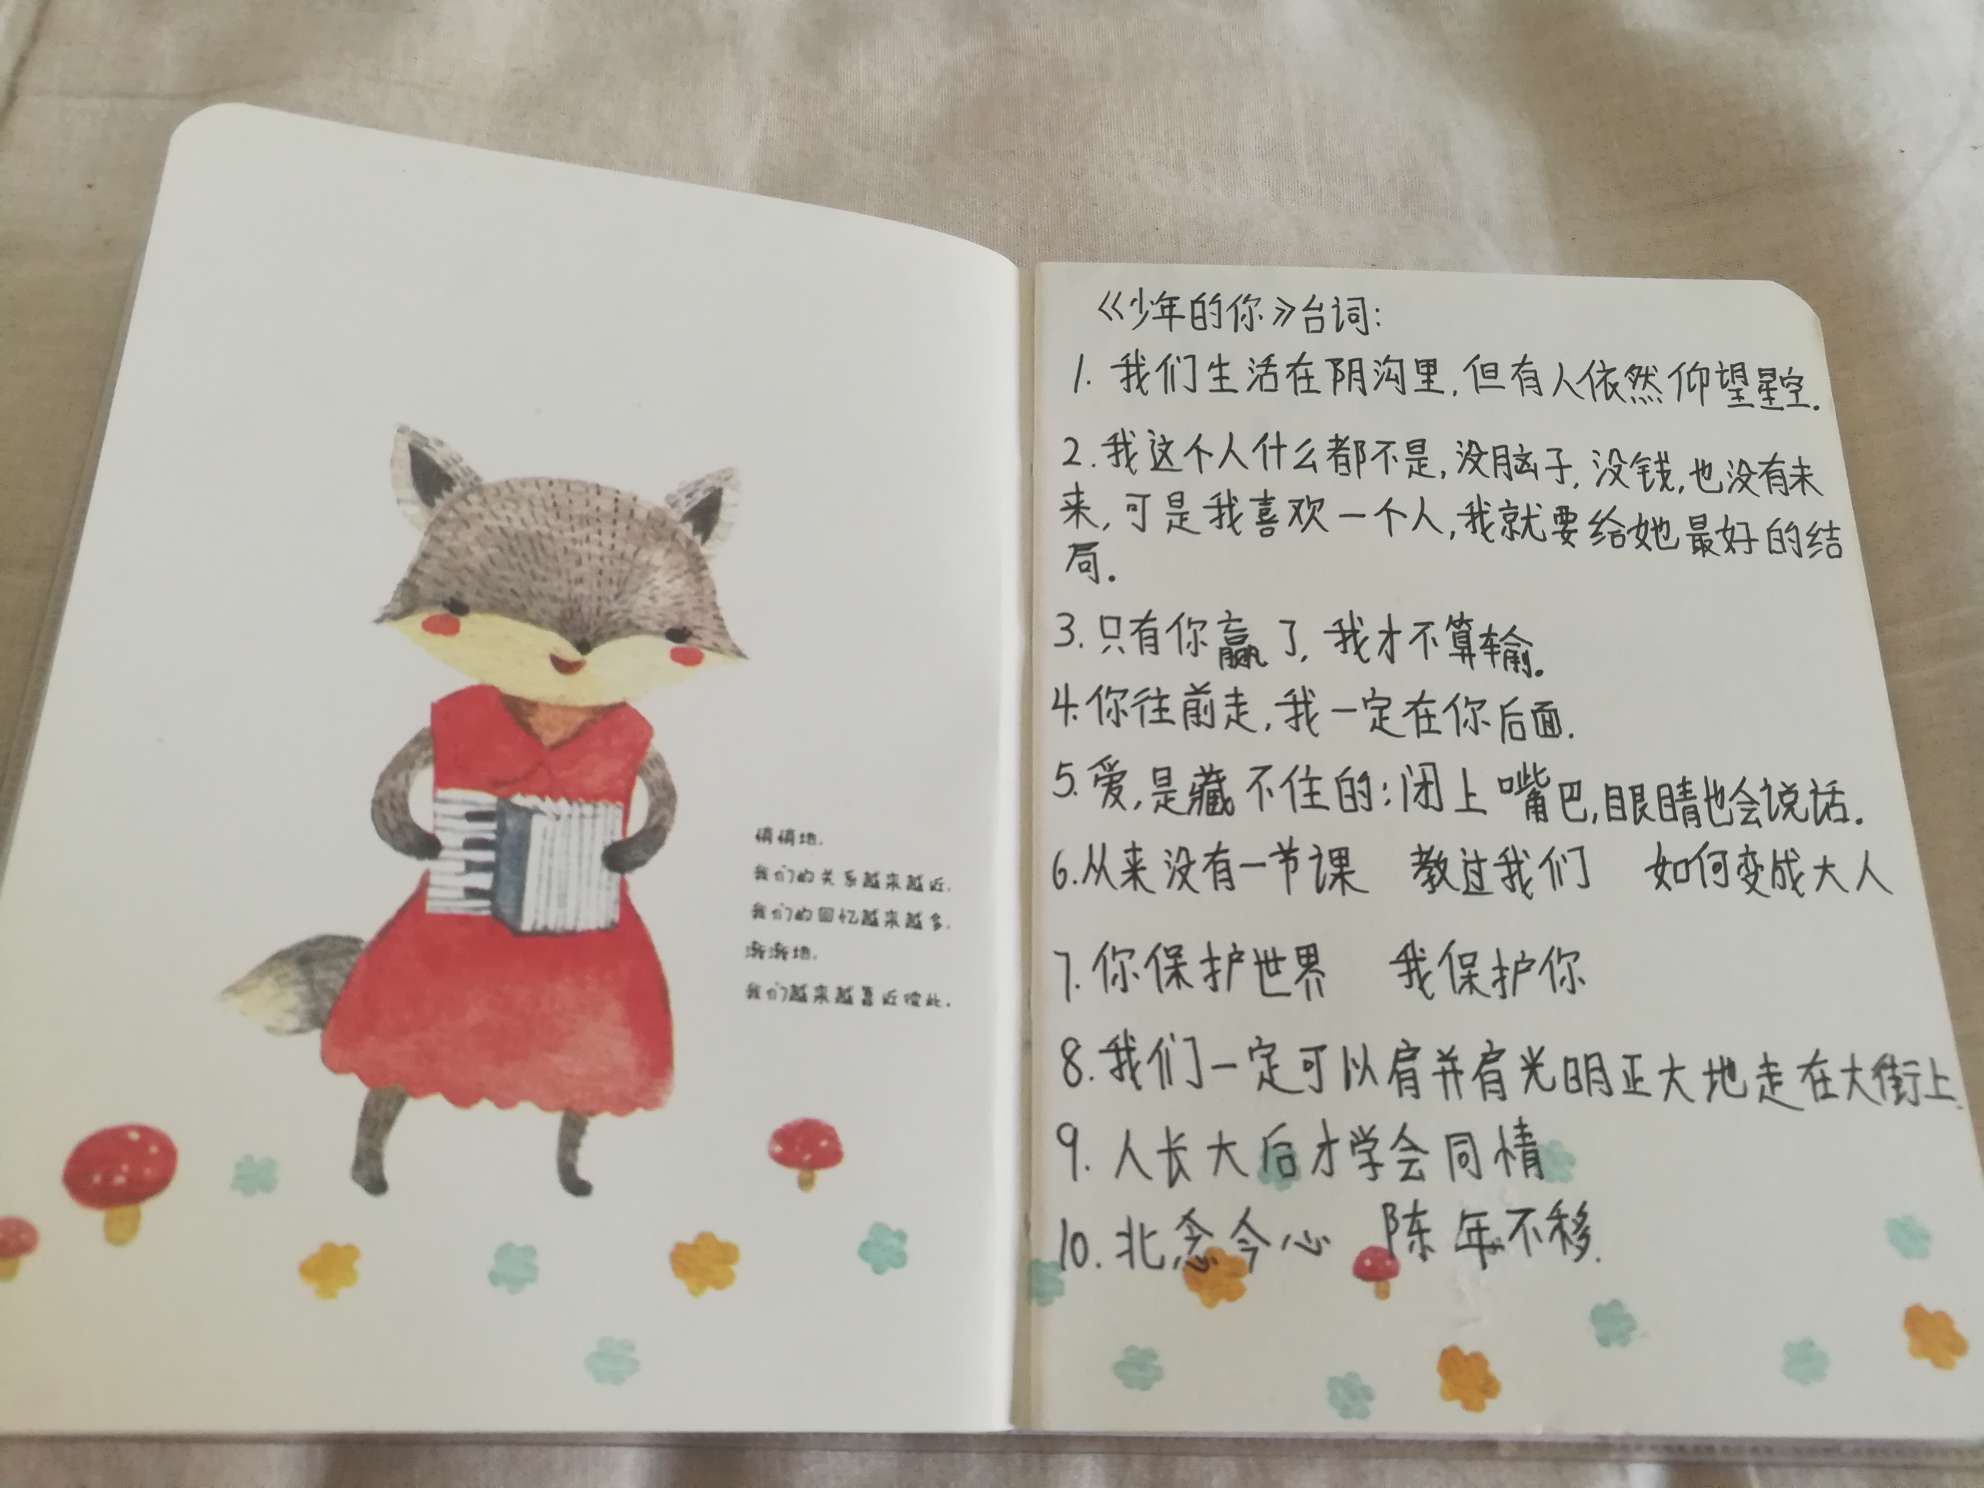 悄悄地,
我们的关系越来越近,
我们的回忆越来越多,
渐渐地,
我们越来越靠近彼此,
《少年的你》台词:
1. 我们生活在阴沟里,但有人依然仰望星空.
2.我这个人什么都不是,没脑子,没钱,也没有未
来,可是我喜欢一个人,我就要给她最好的结
局.
3.只有你赢了,我才不算输.
4.你往前走,我一定在你后面.
5.爱,是藏不住的;闭上嘴巴,眼睛也会说话.
6.从来没有一节课 教过我们 如何变成大人
7.你保护世界 我保护你
8.我们一定可以肩并肩光明正大地走在大街上.
9.人长大后才学会同情
10.北念今心 陈年不移.